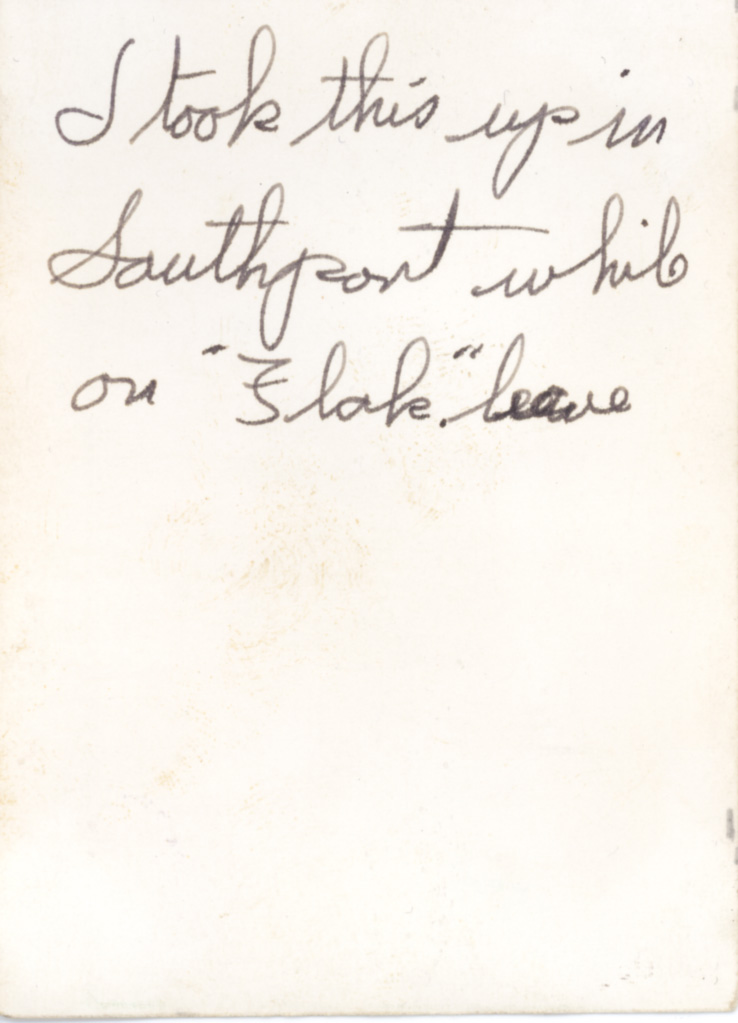 I took this up in
Southport while
on "Flak" leave